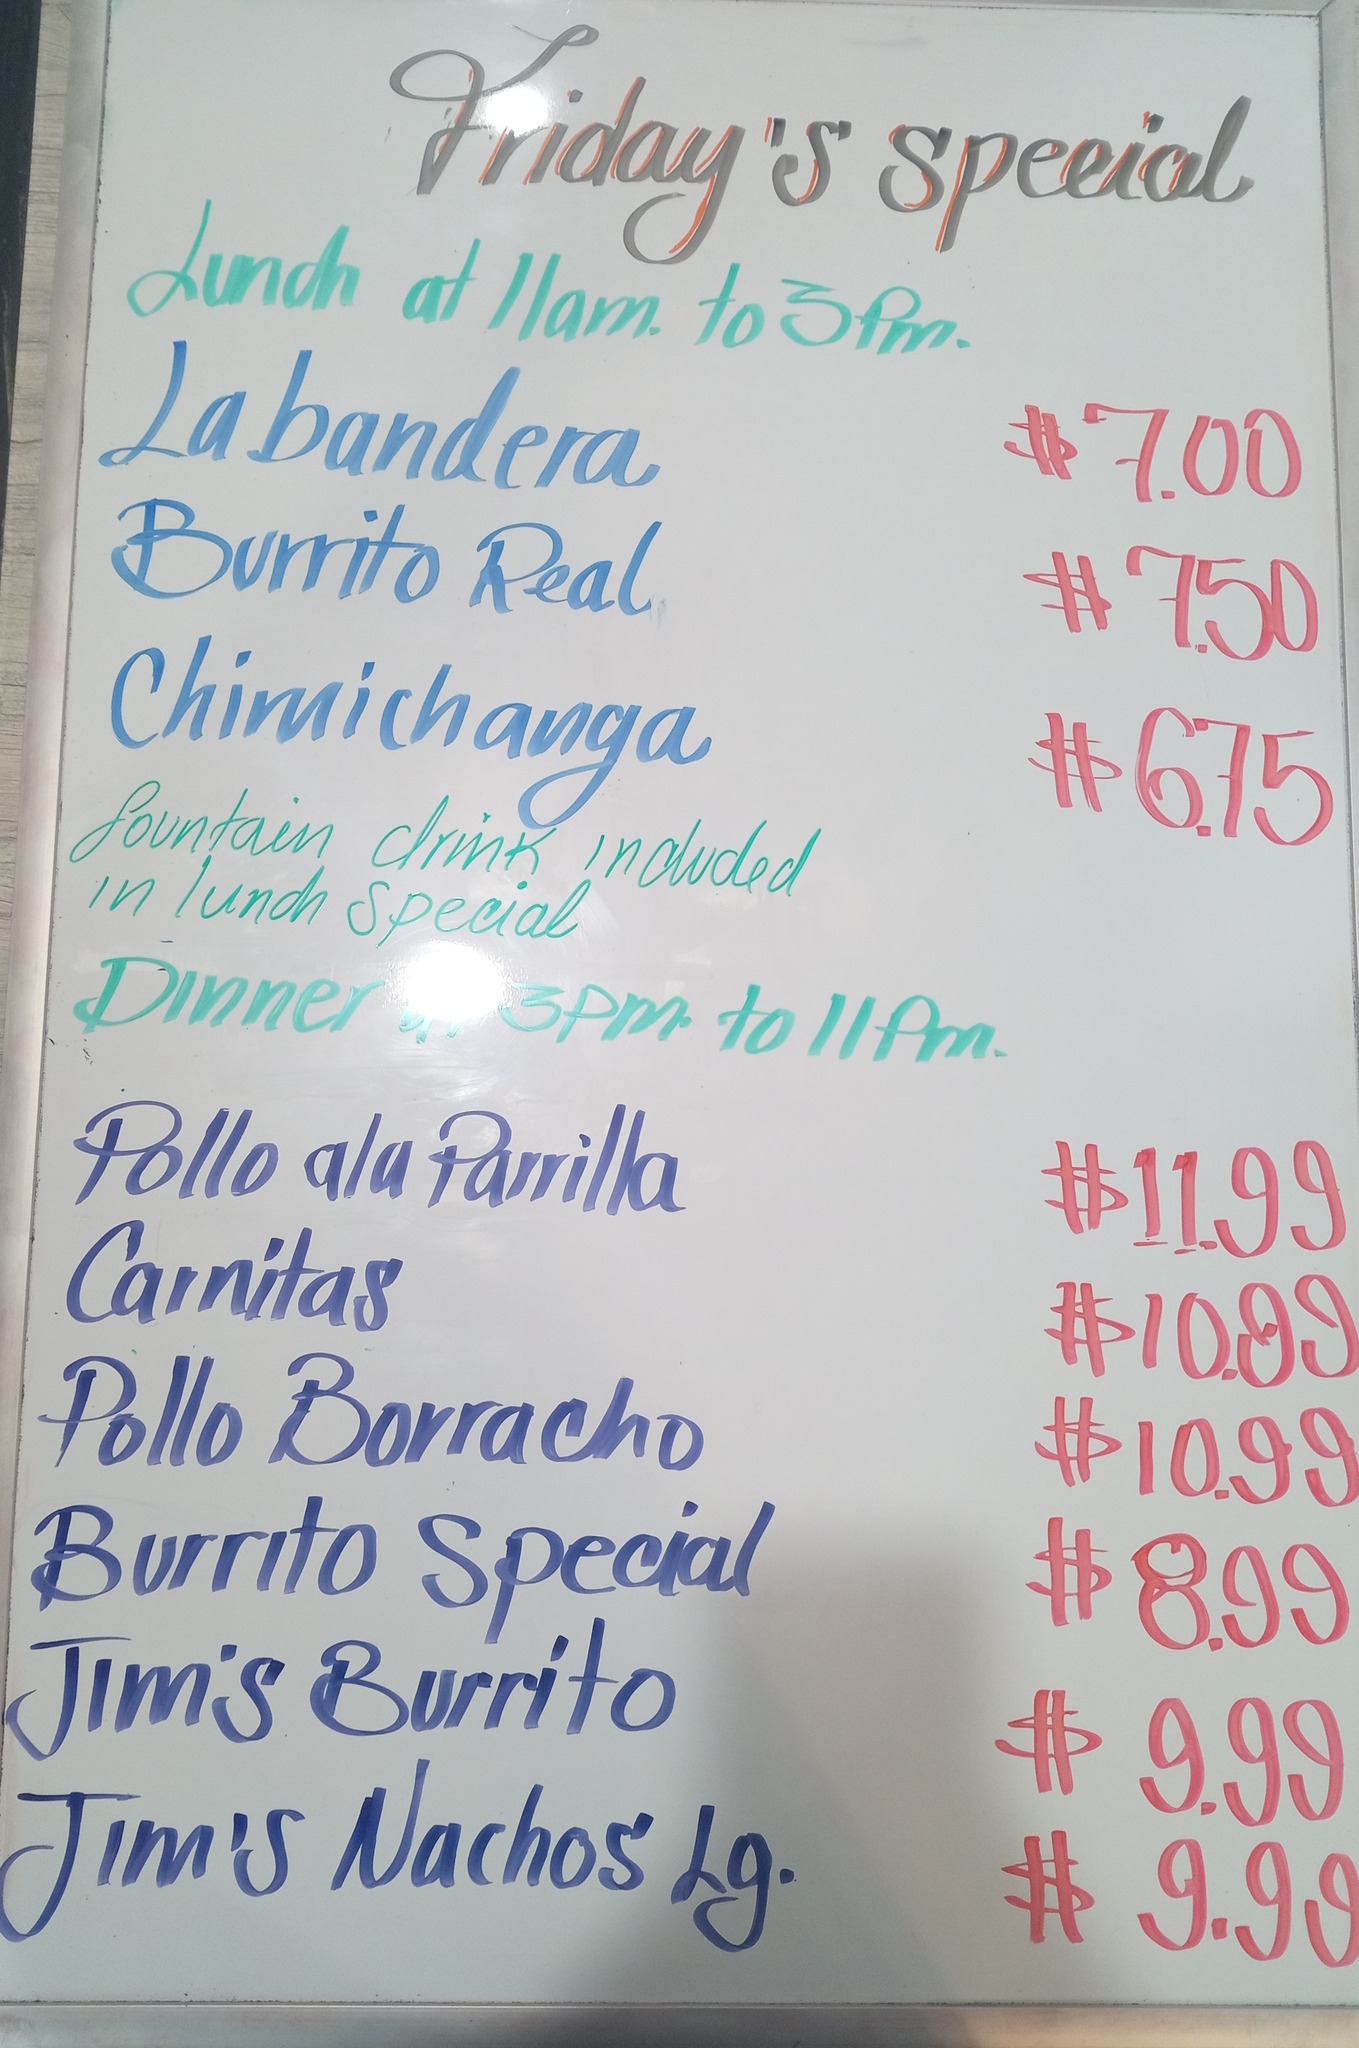 Friday's special
Lunch at 11am. to 3pm.
La bandera $7.00
Burrito Real $7.50
Chimichanga $6.75
fountain drink included
in lunch special
Dinner 3pm. to 11pm.
Pollo ala Parrilla $11.99
Carnitas $10.99
Pollo Borracho $10.99
Burrito Special $8.99
Jim's Burrito $9.99
Jim's Nachos Lg. $9.99